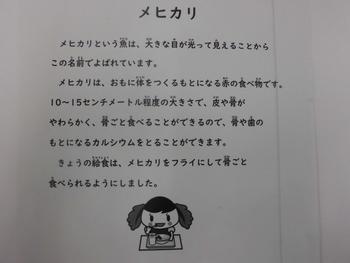 メヒカリ
メヒカリという魚は、大きな目が光って見えることから
この名前でよばれています。
メヒカリは、おもに体をつくるもとになる赤の食べ物です。
10～15センチメートル程度の大きさで、皮や骨が
やわらかく、骨ごと食べることができるので、骨や歯の
もとになるカルシウムをとることができます。
きょうの給食は、メヒカリをフライにして骨ごと
食べられるようにしました。